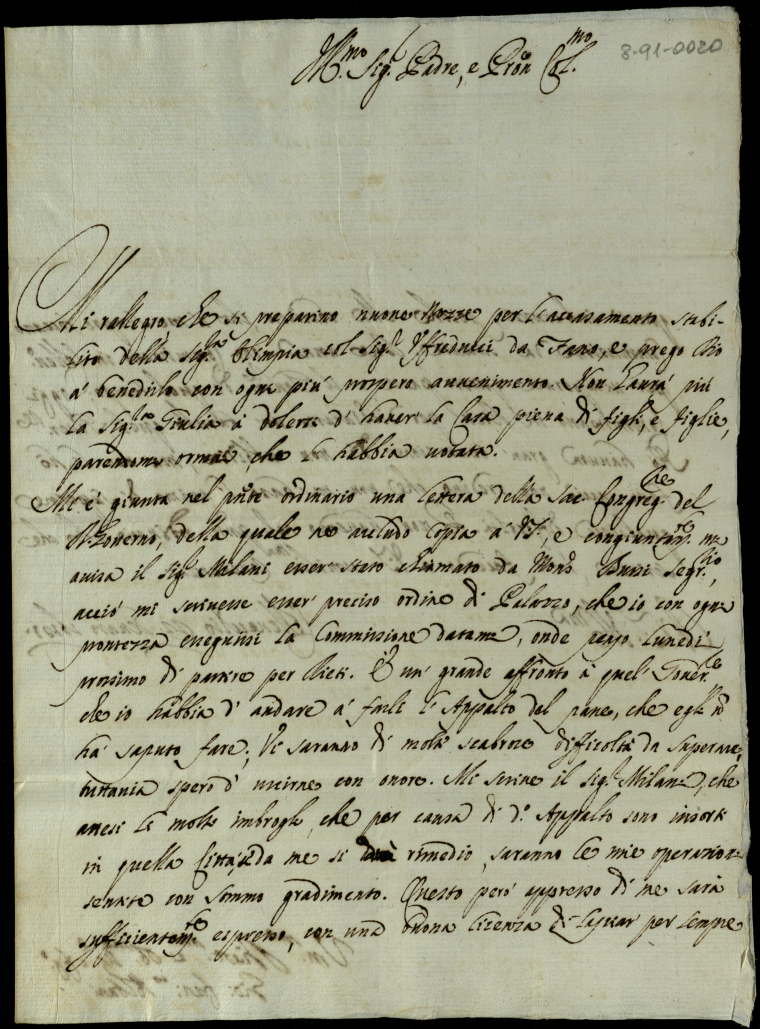 8-91-0020
Ill.mo Sig.r Padre, e Pron Col.mo
Mi rallegro, che si preparino nuove Nozze per l'accasamento stabi-
lito della Sig.ra Olimpia col Sig.r Iffreducci da Fano, e prego Dio
à benedirlo con ogni più prospero avvenimento. Non haurà più
la Sig.ra Giulia à dolersi d'haver la Casa piena di figli, e figlie,
parendomi ormai, che l'habbia votata.
Mi è giunta nel pnte ordinario una lettera della Sac. Congreg.ne del
B. Governo, della quale ne accludo Copia à V.S., e congiuntam.te mi
avisa il Sig.r Milani esser stato chiamato da Mons. Bussi Segr.rio,
acciò mi scrivesse esser preciso ordine di Palazzo, che io con ogni
prontezza eseguissi la Commissione datami, onde penso Lunedì
prossimo di partire per Rieti. È un grande affronto à quel Gover.re
che io habbia d'andare à farli l'Appalto del pane, che egli nō
hà saputo fare; Vi saranno di molte scabrose difficoltà da superare,
tuttavia spero d'uscirne con onore. Mi scrive il Sig.r Milani, che
attesi li molti imbrogli, che per causa di d.o Appalto sono insorti
in quella Città, se da me si dia rimedio, saranno le mie operazioni
sentite con sommo gradimento. Questo però appresso di me sarà
sufficientem.te espresso, con una buona licenza di lasciar per sempre